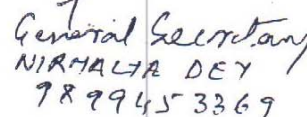 General Secretary
NIRMALYA DEY
9899453369